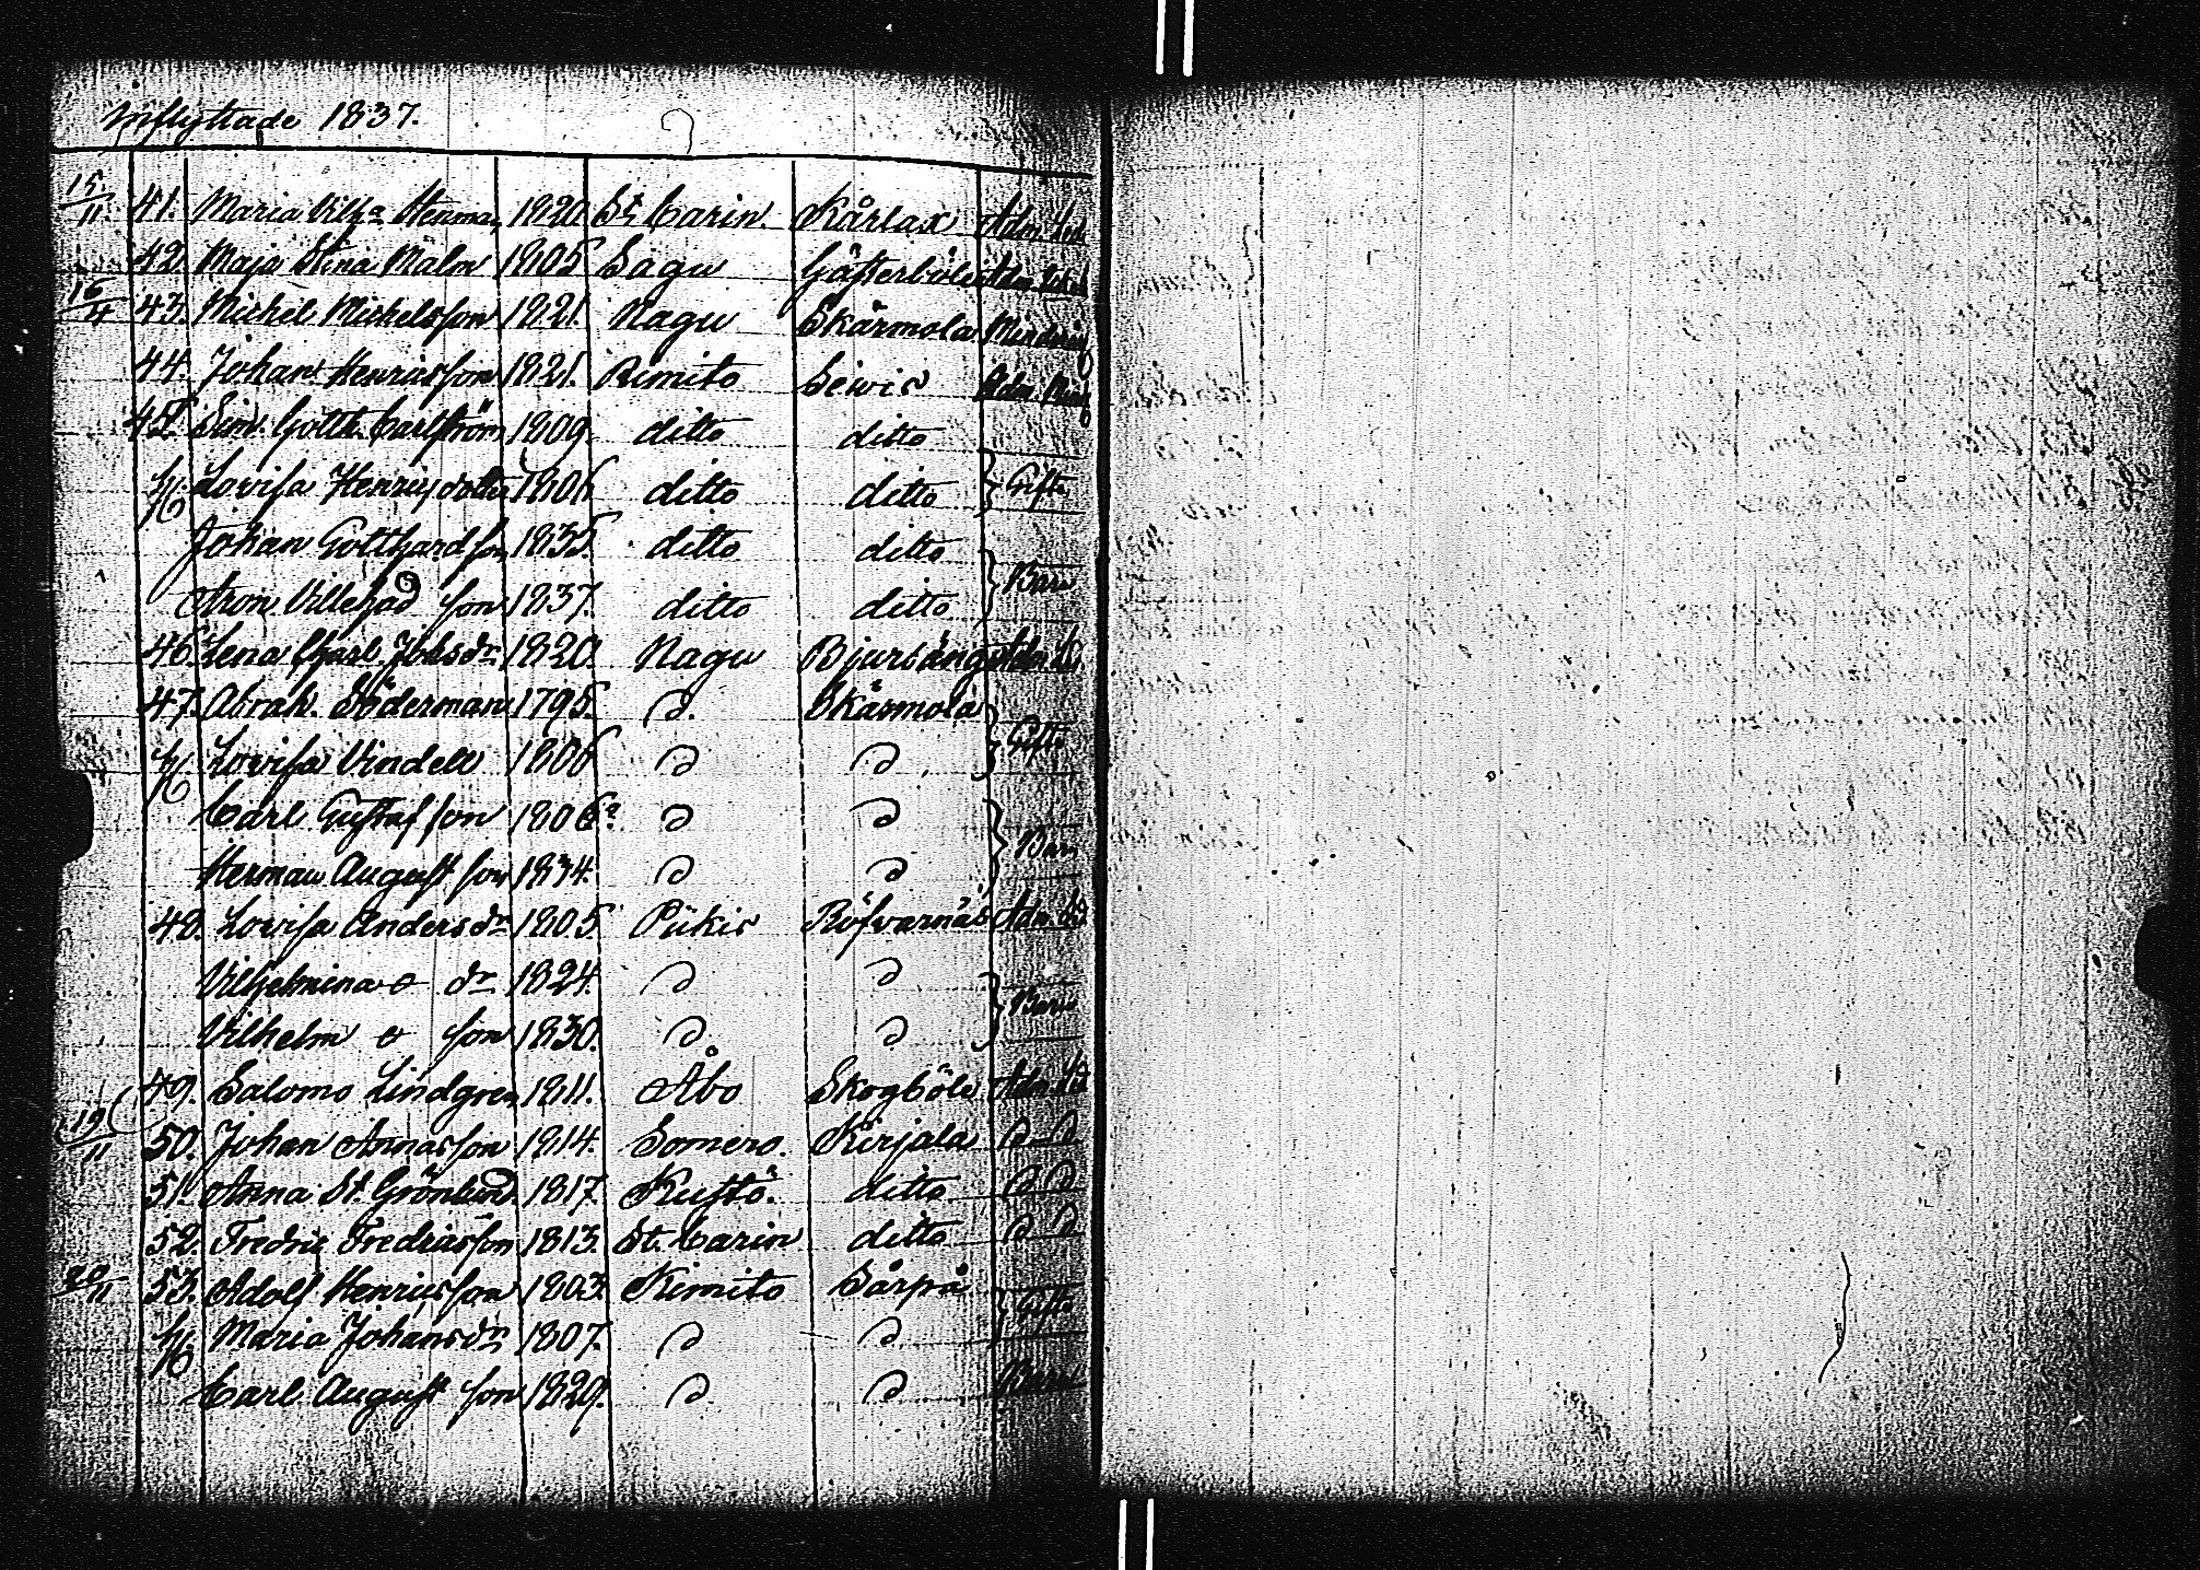 Inflyttade 1837.
15/11. 41. Maria Vilh:a Stenman 1820 St Carin. Kårlax Adm. Led.
42. Maja Stina Malm 1805 Sagu Gästerböle Adm. Led.
16/11 43. Michel Michelsson 1821. Nagu Skärmola Mindrig
44. Johan Henricsson 1821. Rimito Sewis Adm. Mind
45. Sim. Gotth. Carlström 1809. ditto ditto
H. Lovisa Henricsdotter 1806 ditto ditto } Gifta
Johan Gotthard son 1835. ditto ditto
Aron Villehad son 1837. ditto ditto } Barn
46. Lena Charl. Johsdr 1820. Nagu Bjursäng Adm. Led.
47. Abrah. Söderman 1795. D. Skärmola
H. Lovisa Vindell 1806 D D } Gifta
Carl Gustaf son 1806? D D
Herman August son 1834. D D } Barn
48. Lovisa Andersdr 1805. Pikis Röfvarnäs Adm. Led
Vilhelmina o dr 1824. D D
Vilhelm o son 1830. D D } Barn
49. Salomo Lindgren 1811. Åbo Skogböle Adm. Led
19/11 50. Johan Annasson 1814. Somero. Kirjala D D
51. Anna St. Grönlund 1817. Kustö. ditto D D
52. Fredric Fredricsson 1813. St. Carin ditto D D
20/11 53. Adolf Henricsson 1803. Kimito Sårpå
H. Maria Johansdr 1807. D D } Gifta
Carl August son 1829. D D Barn